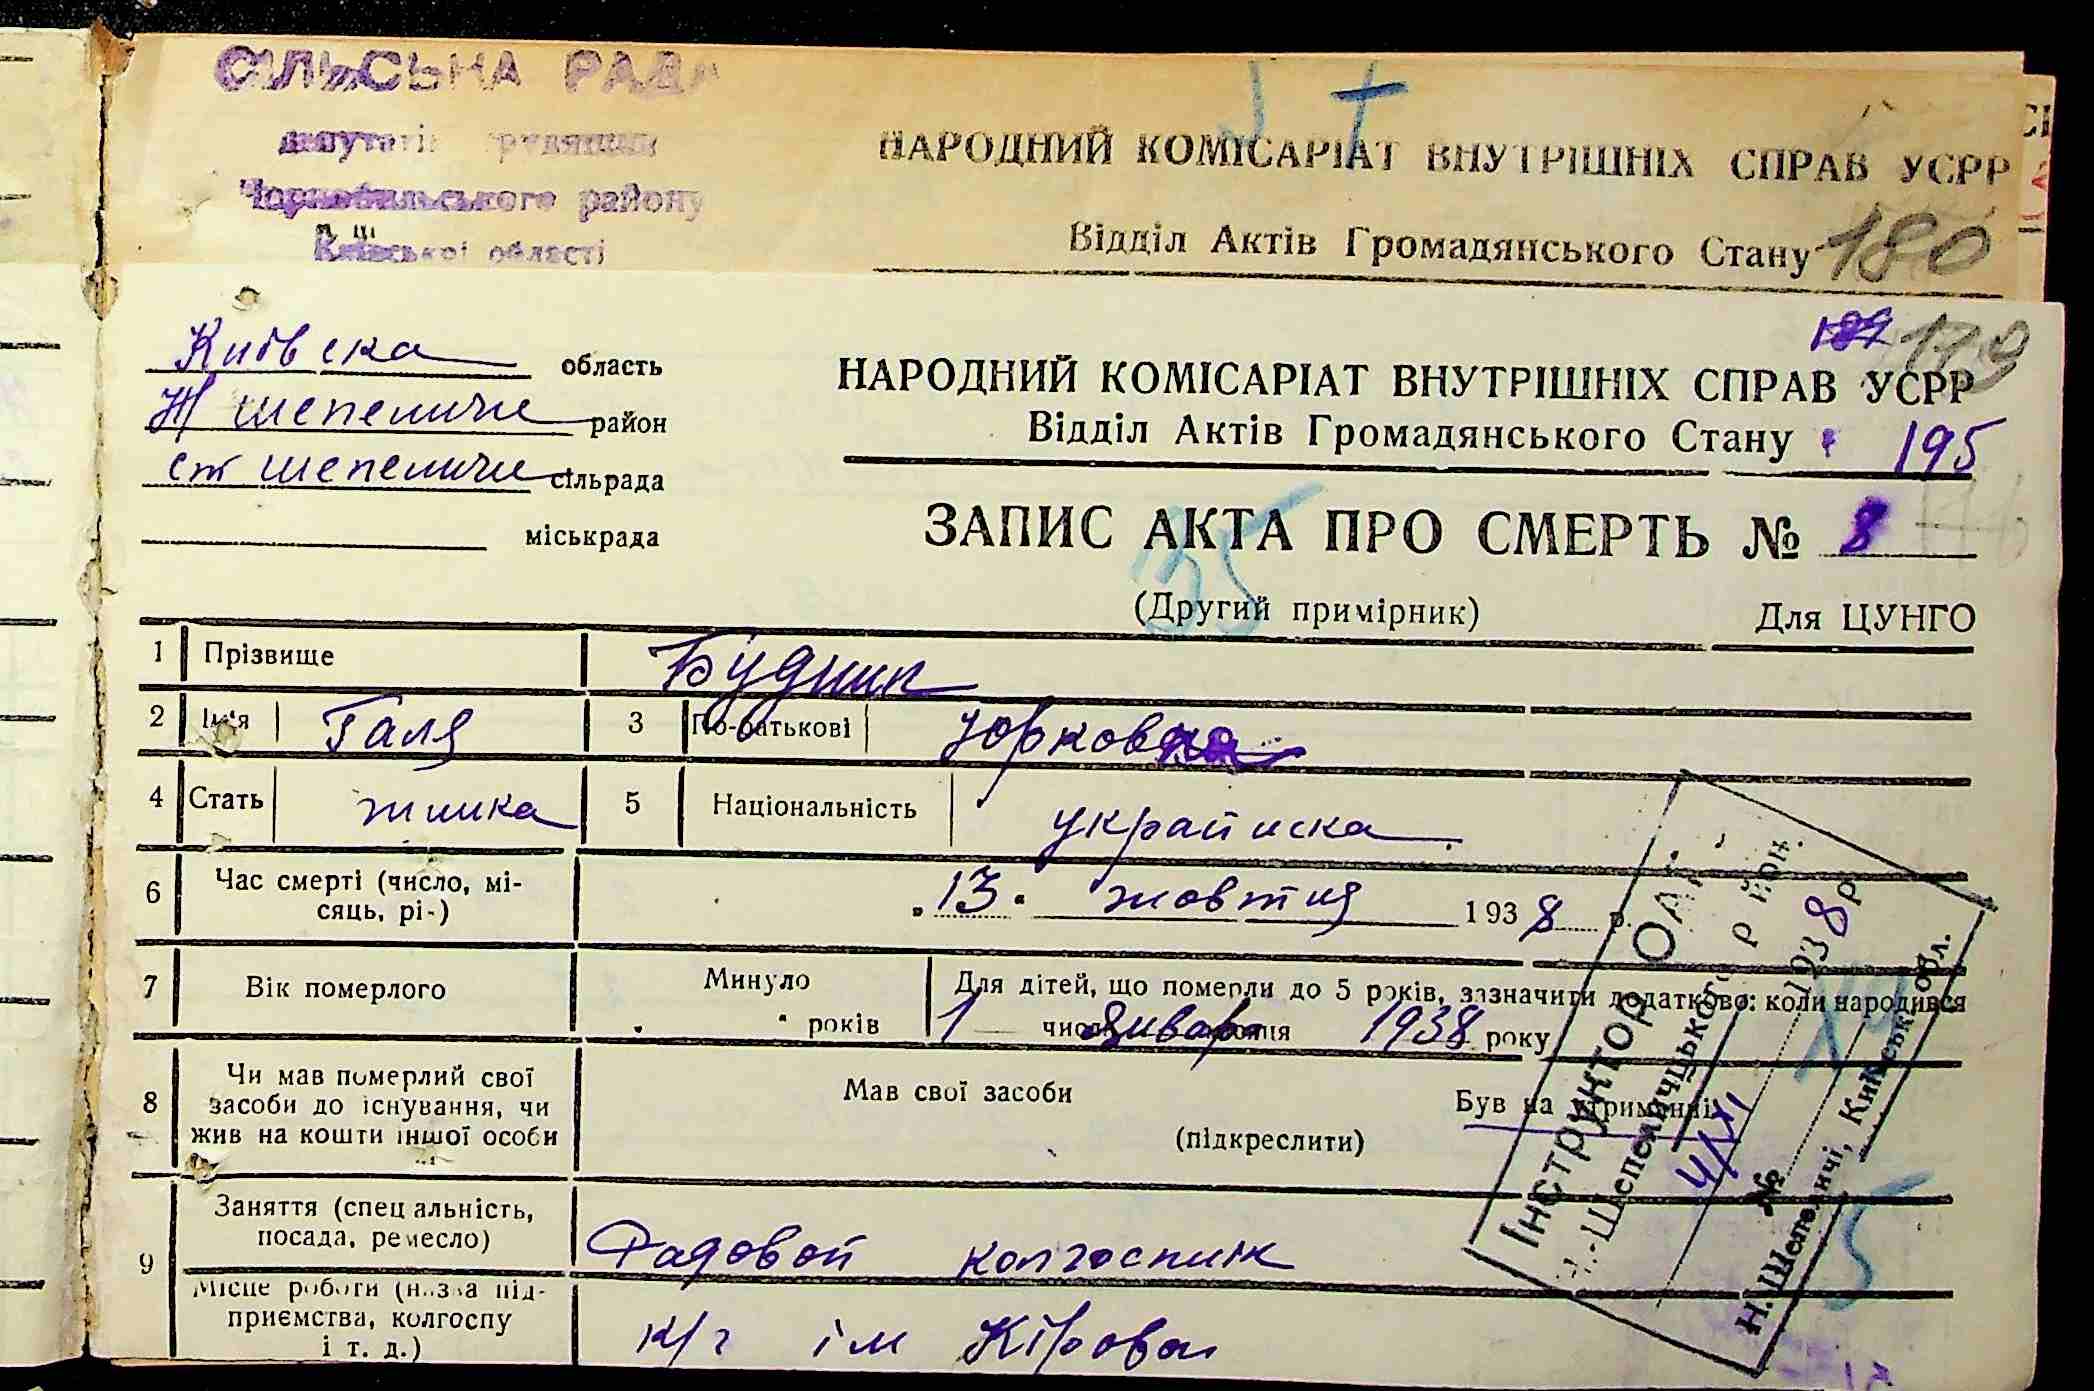 СІЛЬСЬКА РАДА
депутатів трудящих
Чорнобильського району
Київської області
НАРОДНИЙ КОМІСАРІАТ ВНУТРІШНІХ СПРАВ УСРР
Відділ Актів Громадянського Стану 180
Київска область
Н шепеличи район
ст шепеличи сільрада
міськрада
НАРОДНИЙ КОМІСАРІАТ ВНУТРІШНІХ СПРАВ УСРР
Відділ Актів Громадянського Стану 195
ЗАПИС АКТА ПРО СМЕРТЬ № 8
135
(Другий примірник) Для ЦУНГО
1 Прізвище Будник
2 Ім'я Галя 3 По-батькові Юрковна
4 Стать жинка 5 Національність украинска
6 Час смерті (число, мі-
сяць, рік) „13" жовтня 1938 р.
7 Вік померлого Минуло років
Для дітей, що померли до 5 років, зазначити додатково: коли народився
1 числа января місяця 1938 року
8 Чи мав померлий свої
засоби до існування, чи
жив на кошти іншої особи
Мав свої засоби Був на утриманні
(підкреслити)
9 Заняття (спеціальність,
посада, ремесло) Радовой колгоспник
Місце роботи (назва під-
приємства, колгоспу
і т. д.) к/г ім Кірова
Інструктор ОАГС
Н.-Шепеличцького р йон.
4/XI 1938 р
№
Н. Шепеличі, Київськ. обл.